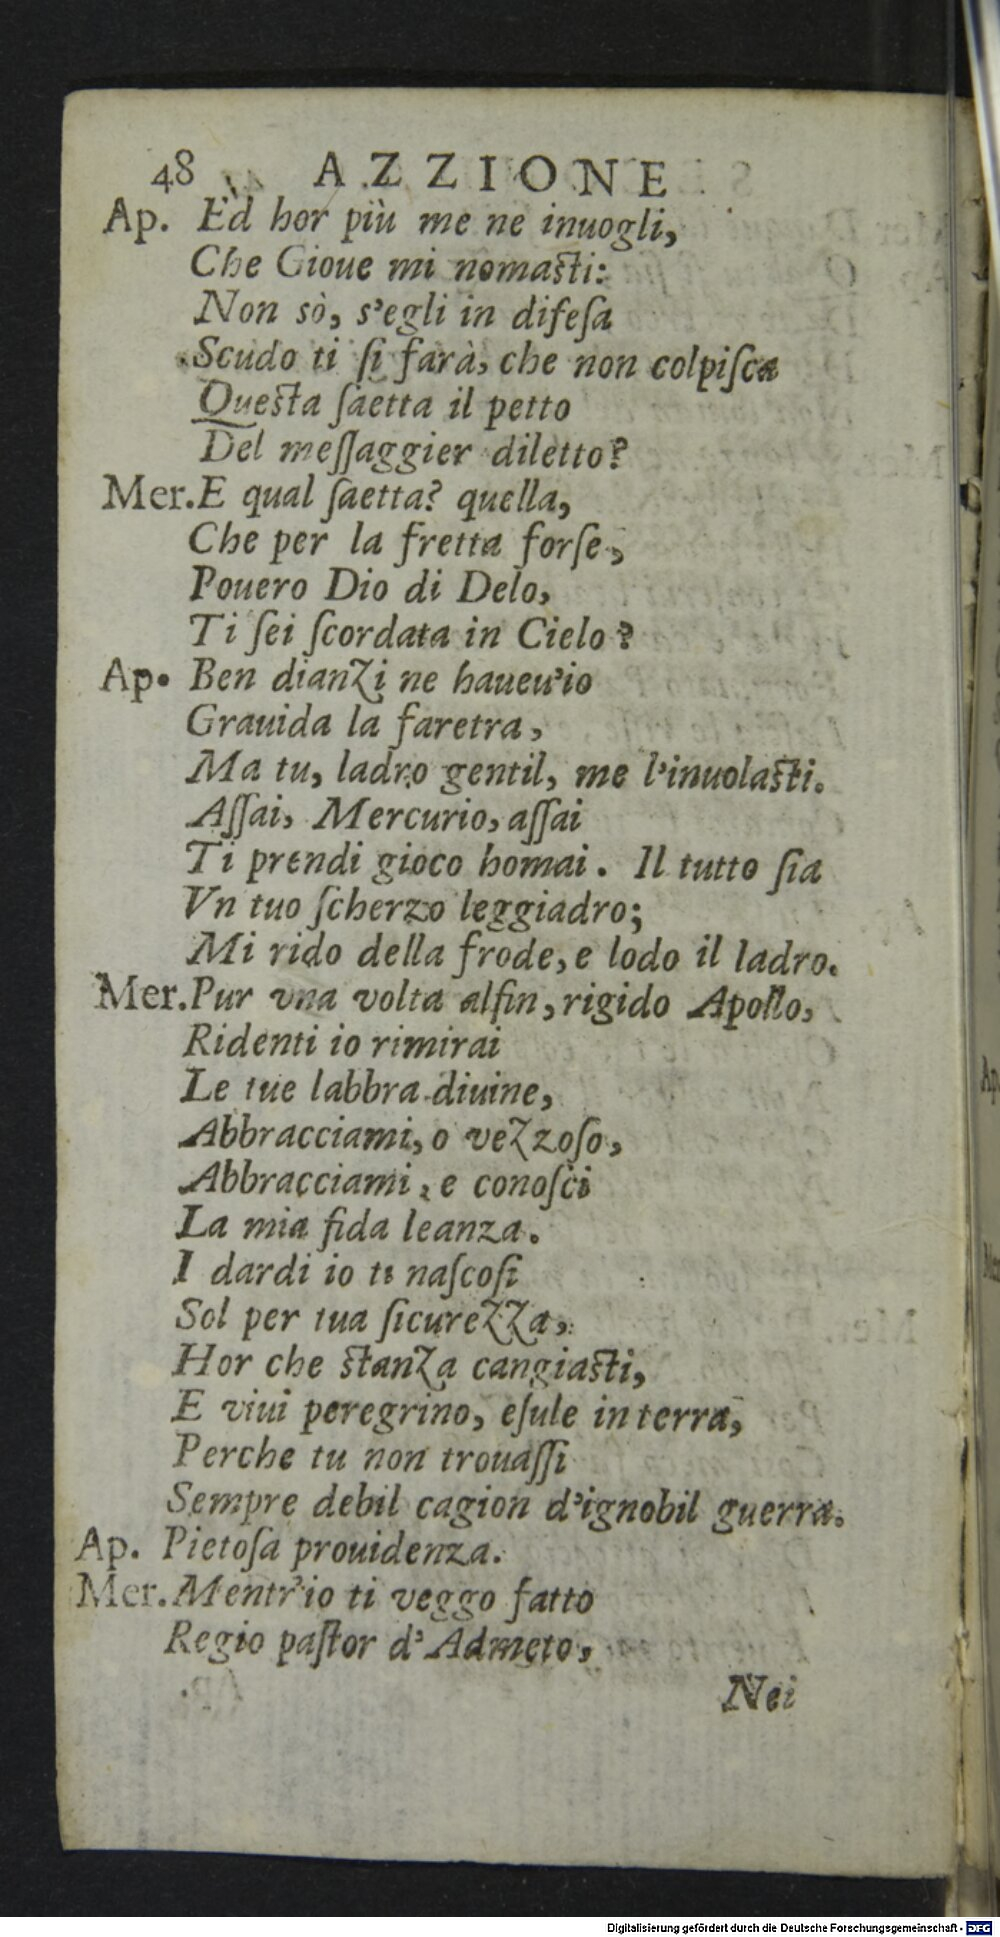 48 AZZIONE
Ap. Ed hor più me ne inuogli,
Che Gioue mi nomasti:
Non sò, s'egli in difeſa
Scudo ti ſi farà, che non colpiſca
Questa ſaetta il petto
Del meſſaggier diletto?
Mer. E qual ſaetta? quella,
Che per la fretta forſe,
Pouero Dio di Delo,
Ti ſei ſcordata in Cielo?
Ap. Ben dianzi ne haueu'io
Grauida la faretra,
Ma tu, ladro gentil, me l'inuolasti.
Aſſai, Mercurio, aſſai
Ti prendi gioco homai. Il tutto ſia
Vn tuo ſcherzo leggiadro;
Mi rido della frode, e lodo il ladro.
Mer. Pur vna volta alfin, rigido Apollo,
Ridenti io rimirai
Le tue labbra diuine,
Abbracciami, o vezzoſo,
Abbracciami, e conoſci
La mia fida leanza.
I dardi io ti naſcoſi
Sol per tua ſicurezza,
Hor che stanza cangiasti,
E viui peregrino, eſule in terra,
Perche tu non trouaſſi
Sempre debil cagion d'ignobil guerra.
Ap. Pietoſa prouidenza.
Mer. Mentr'io ti veggo fatto
Regio paſtor d'Admeto,
Nei
Digitalisierung gefördert durch die Deutsche Forschungsgemeinschaft - DFG